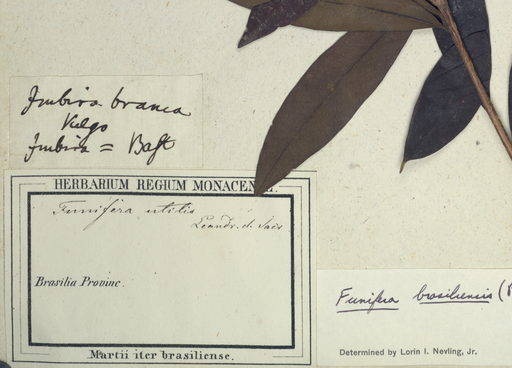 Imbira branca
Vulgo
Imbira = Bast
HERBARIUM REGIUM MONACEN
Funifera utilis
Leandr. d. Sacr
Brasilia Provinc.
Martii iter brasiliense.
Funifera brasiliensis (
Determined by Lorin I. Nevling, Jr.